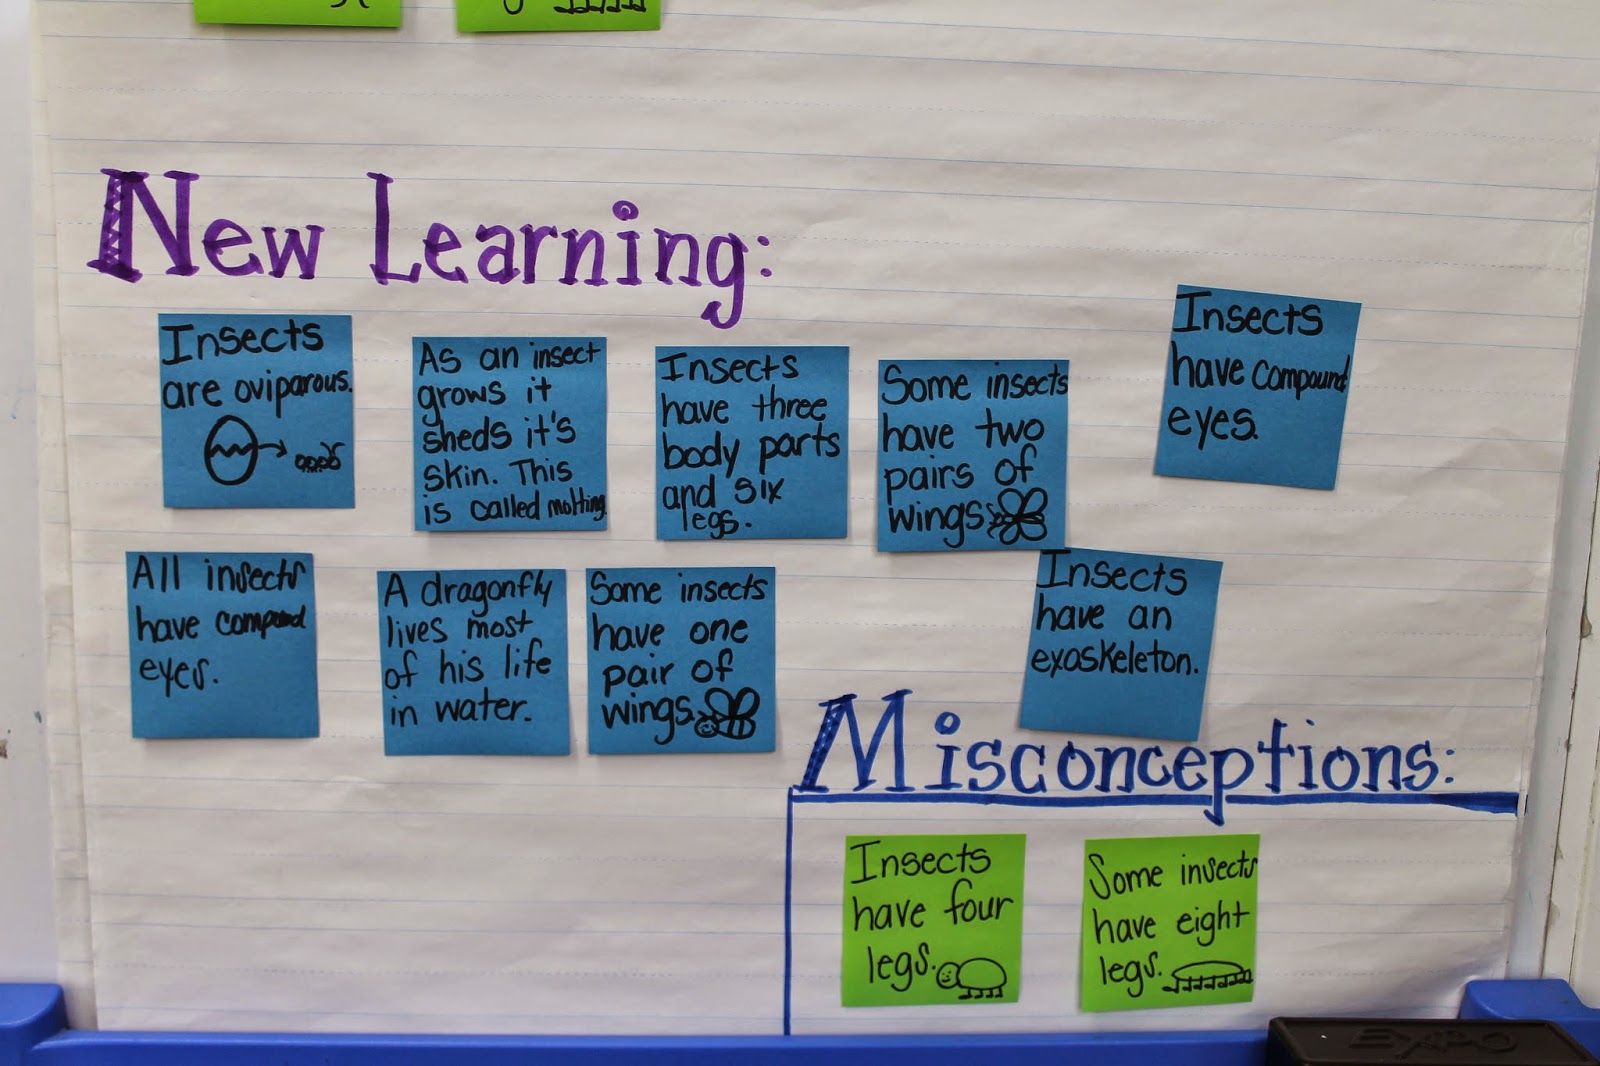 New Learning:
Insects
are oviparous.
As an insect
grows it
sheds it's
skin. This
is called molting.
Insects
have three
body parts
and six
legs.
Some insects
have two
pairs of
wings.
Insects
have compound
eyes.
All insects
have compound
eyes.
A dragonfly
lives most
of his life
in water.
Some insects
have one
pair of
wings.
Insects
have an
exoskeleton.
Misconceptions:
Insects
have four
legs.
Some insects
have eight
legs.
EXPO